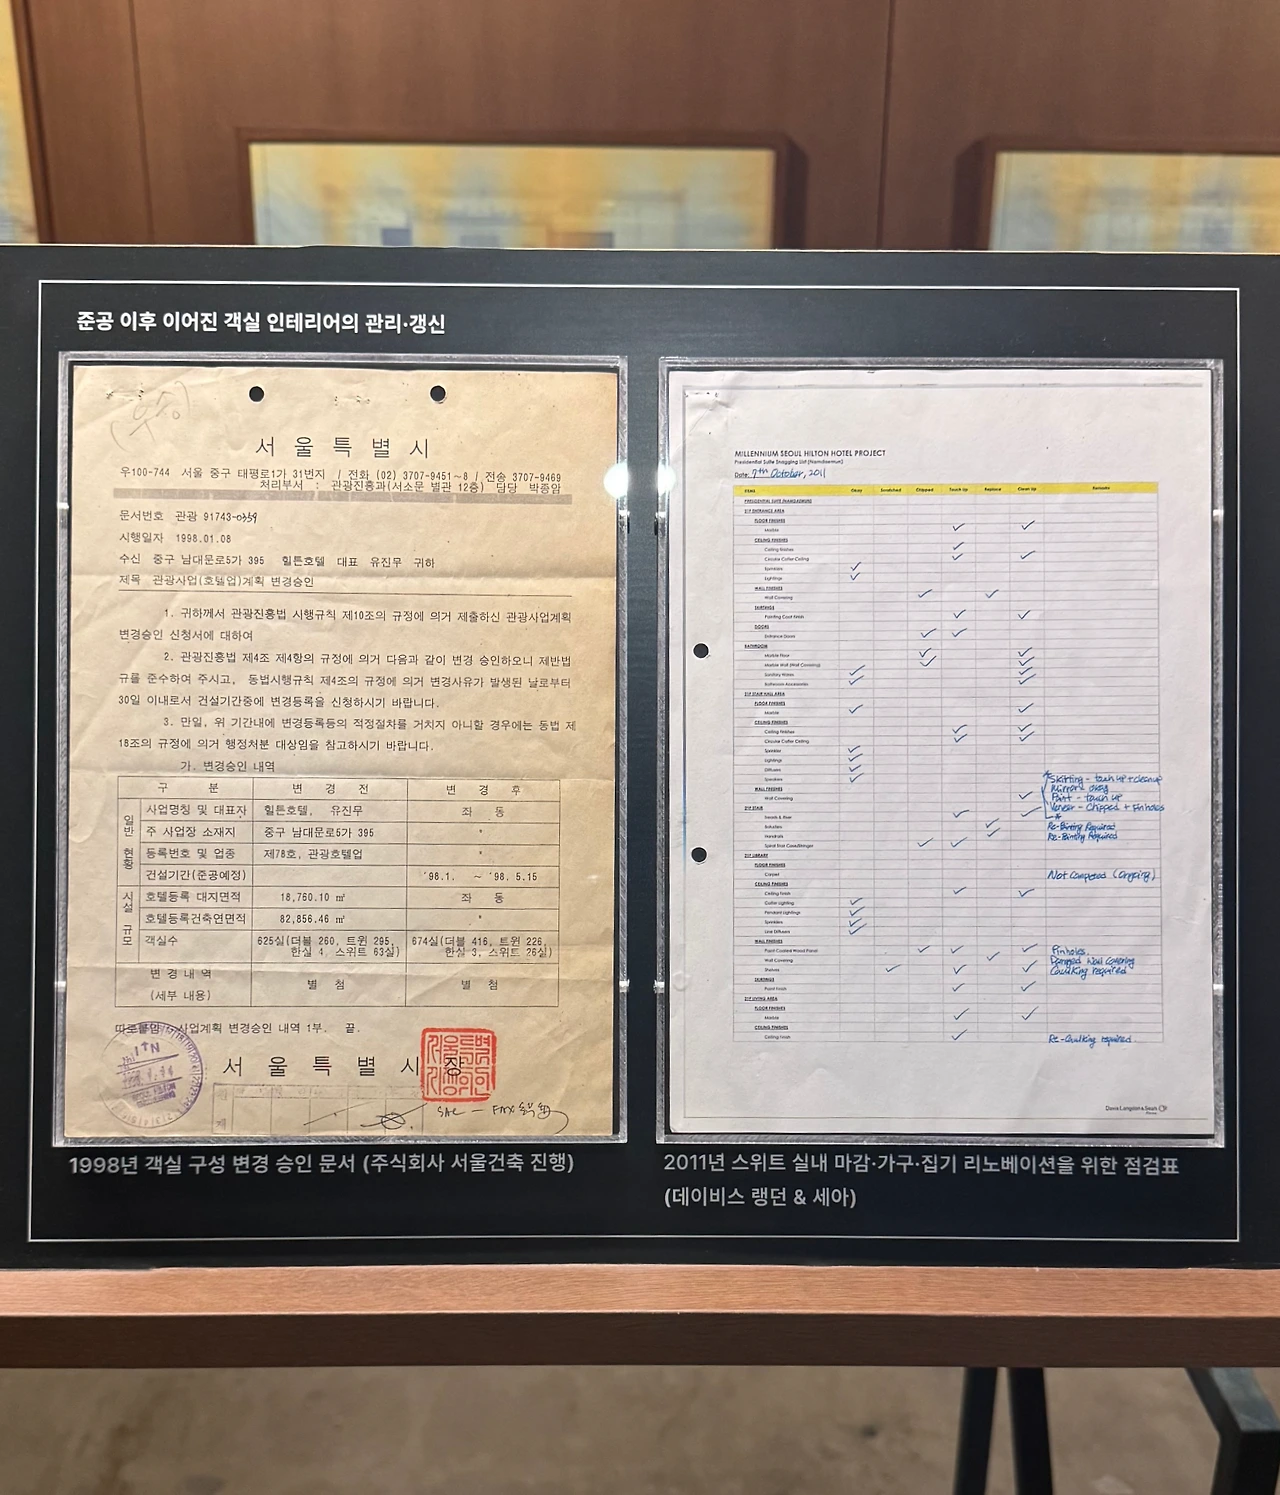 준공 이후 이어진 객실 인테리어의 관리·갱신
서 울 특 별 시
우100-744 서울 중구 태평로1가 31번지 / 전화 (02) 3707-9451~8 / 전송 3707-9469
처리부서 : 관광진흥과(서소문 별관 12층) 담당 박종암
문서번호 관광 91743-0359
시행일자 1998.01.08
수신 중구 남대문로5가 395 힐튼호텔 대표 유진무 귀하
제목 관광사업(호텔업)계획 변경승인
1. 귀하께서 관광진흥법 시행규칙 제10조의 규정에 의거 제출하신 관광사업계획
변경승인 신청서에 대하여
2. 관광진흥법 제4조 제4항의 규정에 의거 다음과 같이 변경 승인하오니 제반법
규를 준수하여 주시고, 동법시행규칙 제4조의 규정에 의거 변경사유가 발생된 날로부터
30일 이내로서 건설기간중에 변경등록을 신청하시기 바랍니다.
3. 만일, 위 기간내에 변경등록등의 적정절차를 거치지 아니할 경우에는 동법 제
18조의 규정에 의거 행정처분 대상임을 참고하시기 바랍니다.
가. 변경승인 내역
구 분 변 경 전 변 경 후
일반 현황
사업명칭 및 대표자 힐튼호텔, 유진무 좌 동
주 사업장 소재지 중구 남대문로5가 395 "
등록번호 및 업종 제78호, 관광호텔업 "
건설기간(준공예정) '98.1. ~ '98. 5.15
시설 규모
호텔등록 대지면적 18,760.10 ㎡ 좌 동
호텔등록건축연면적 82,856.46 ㎡ "
객실수 625실(더블 260, 트윈 295, 674실(더블 416, 트윈 226,
한실 4, 스위트 63실) 한실 3, 스위트 26실)
변 경 내 역
(세부 내용) 별 첨 별 첨
따로붙임 사업계획 변경승인 내역 1부. 끝.
서 울 특 별 시 장
1998년 객실 구성 변경 승인 문서 (주식회사 서울건축 진행)
MILLENNIUM SEOUL HILTON HOTEL PROJECT
Presidential Suite Snagging List (Namdaemun)
Date: 7th October, 2011
ITEMS Okay Scratched Chipped Touch Up Replace Clean Up Remarks
PRESIDENTIAL SUITE (NAMDAEMUN)
21F ENTRANCE AREA
FLOOR FINISHES
Marble
CEILING FINISHES
Ceiling finishes
Circular Coffer Ceiling
Sprinklers
Lightings
WALL FINISHES
Wall Covering
SKIRTINGS
Painting Coat Finish
DOORS
Entrance Doors
BATHROOM
Marble Floor
Marble Wall (Wall Covering)
Sanitary Wares
Bathroom Accessories
21F STAIR HALL AREA
FLOOR FINISHES
Marble
CEILING FINISHES
Ceiling Finishes
Circular Coffer Ceiling
Sprinkler
Lightings
Diffusers
Speakers
Skirting - touch up + cleanup
WALL FINISHES
Mirror : okay
Wall Covering
Paint - touch up
21F STAIR
Veneer - Chipped + Pinholes
Treads & Riser
Balusters Re-Painting Required
Handrails Re-Painting Required
21F LIBRARY
FLOOR FINISHES
Carpet Not Completed (Ongoing)
CEILING FINISHES
Ceiling Finish
Coffer Lighting
Pendant Lightings
Sprinklers
Line Diffusers
WALL FINISHES
Paint Coated Wood Panel Pinholes
Wall Covering Damaged Wall Covering
Shelves Caulking required
SKIRTINGS
Paint Finish
21F LIVING AREA
FLOOR FINISHES
Marble
CEILING FINISHES
Ceiling Finish Re-Caulking required.
Davis Langdon & Seah
2011년 스위트 실내 마감·가구·집기 리노베이션을 위한 점검표
(데이비스 랭던 & 세아)